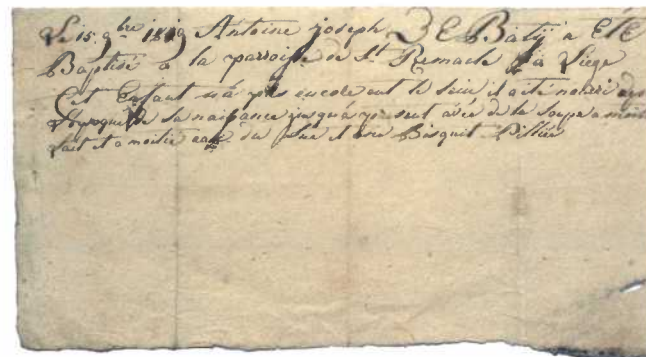 Le 15 9bre 1819 Antoine joseph DE Batij a Eté
Baptisé a la parroisse de St Remacle a Liege
Cet Enfant na pas encore eut le sein il a eté nourri
de sa naissance jusqua present avec de la soupe a moitie
Lait et a moitie eau du Sucre et avec Bisquit